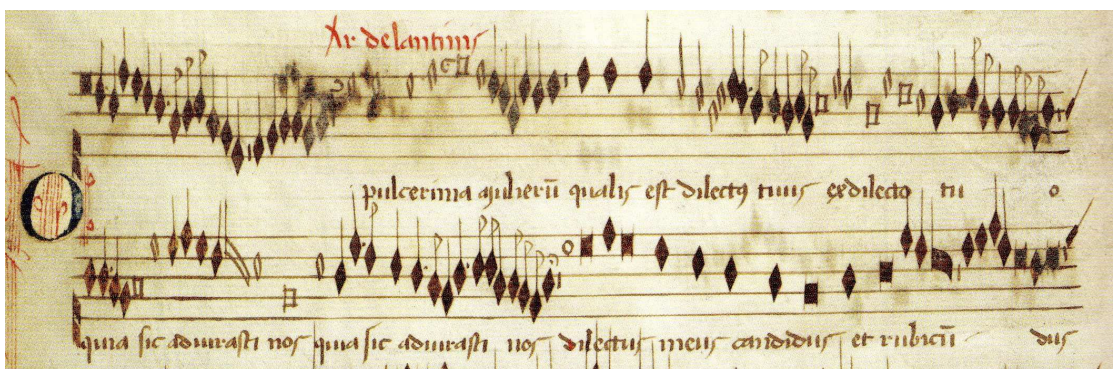 Ar de lantinis
O pulcerima mulierū qualis est dilectꝯ tuus ex dilecto tu o
quia sic adiurasti nos quia sic adiurasti nos dilectus meus candidus et rubicū dus